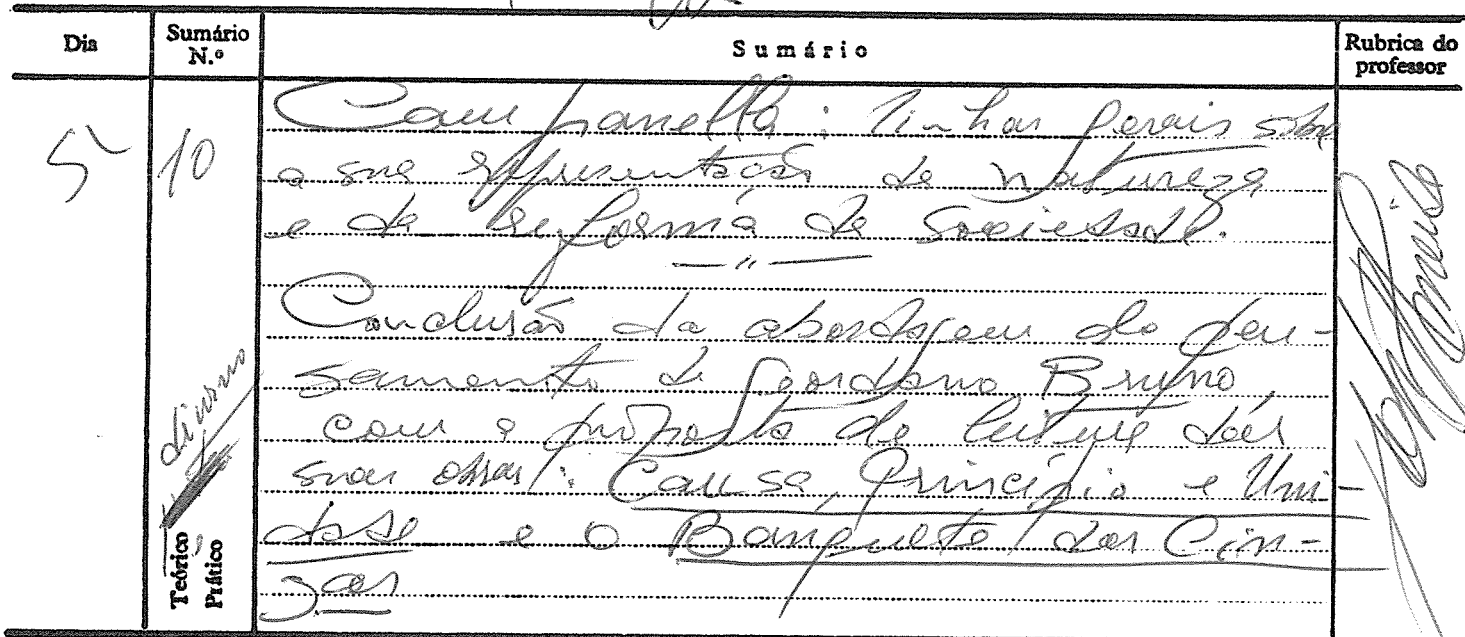 Dia
Sumário N.º
Sumário
Rubrica do professor
5
10
Campanella: linhas gerais sobre
a sua representação da natureza
e da reforma da sociedade.
— " —
Conclusão da abordagem do pen-
samento de Giordano Bruno,
com a proposta de leitura das
suas obras: Causa, Princípio e Uni-
dade e O Banquete das Cin-
zas
diurno
Teórico
Prático